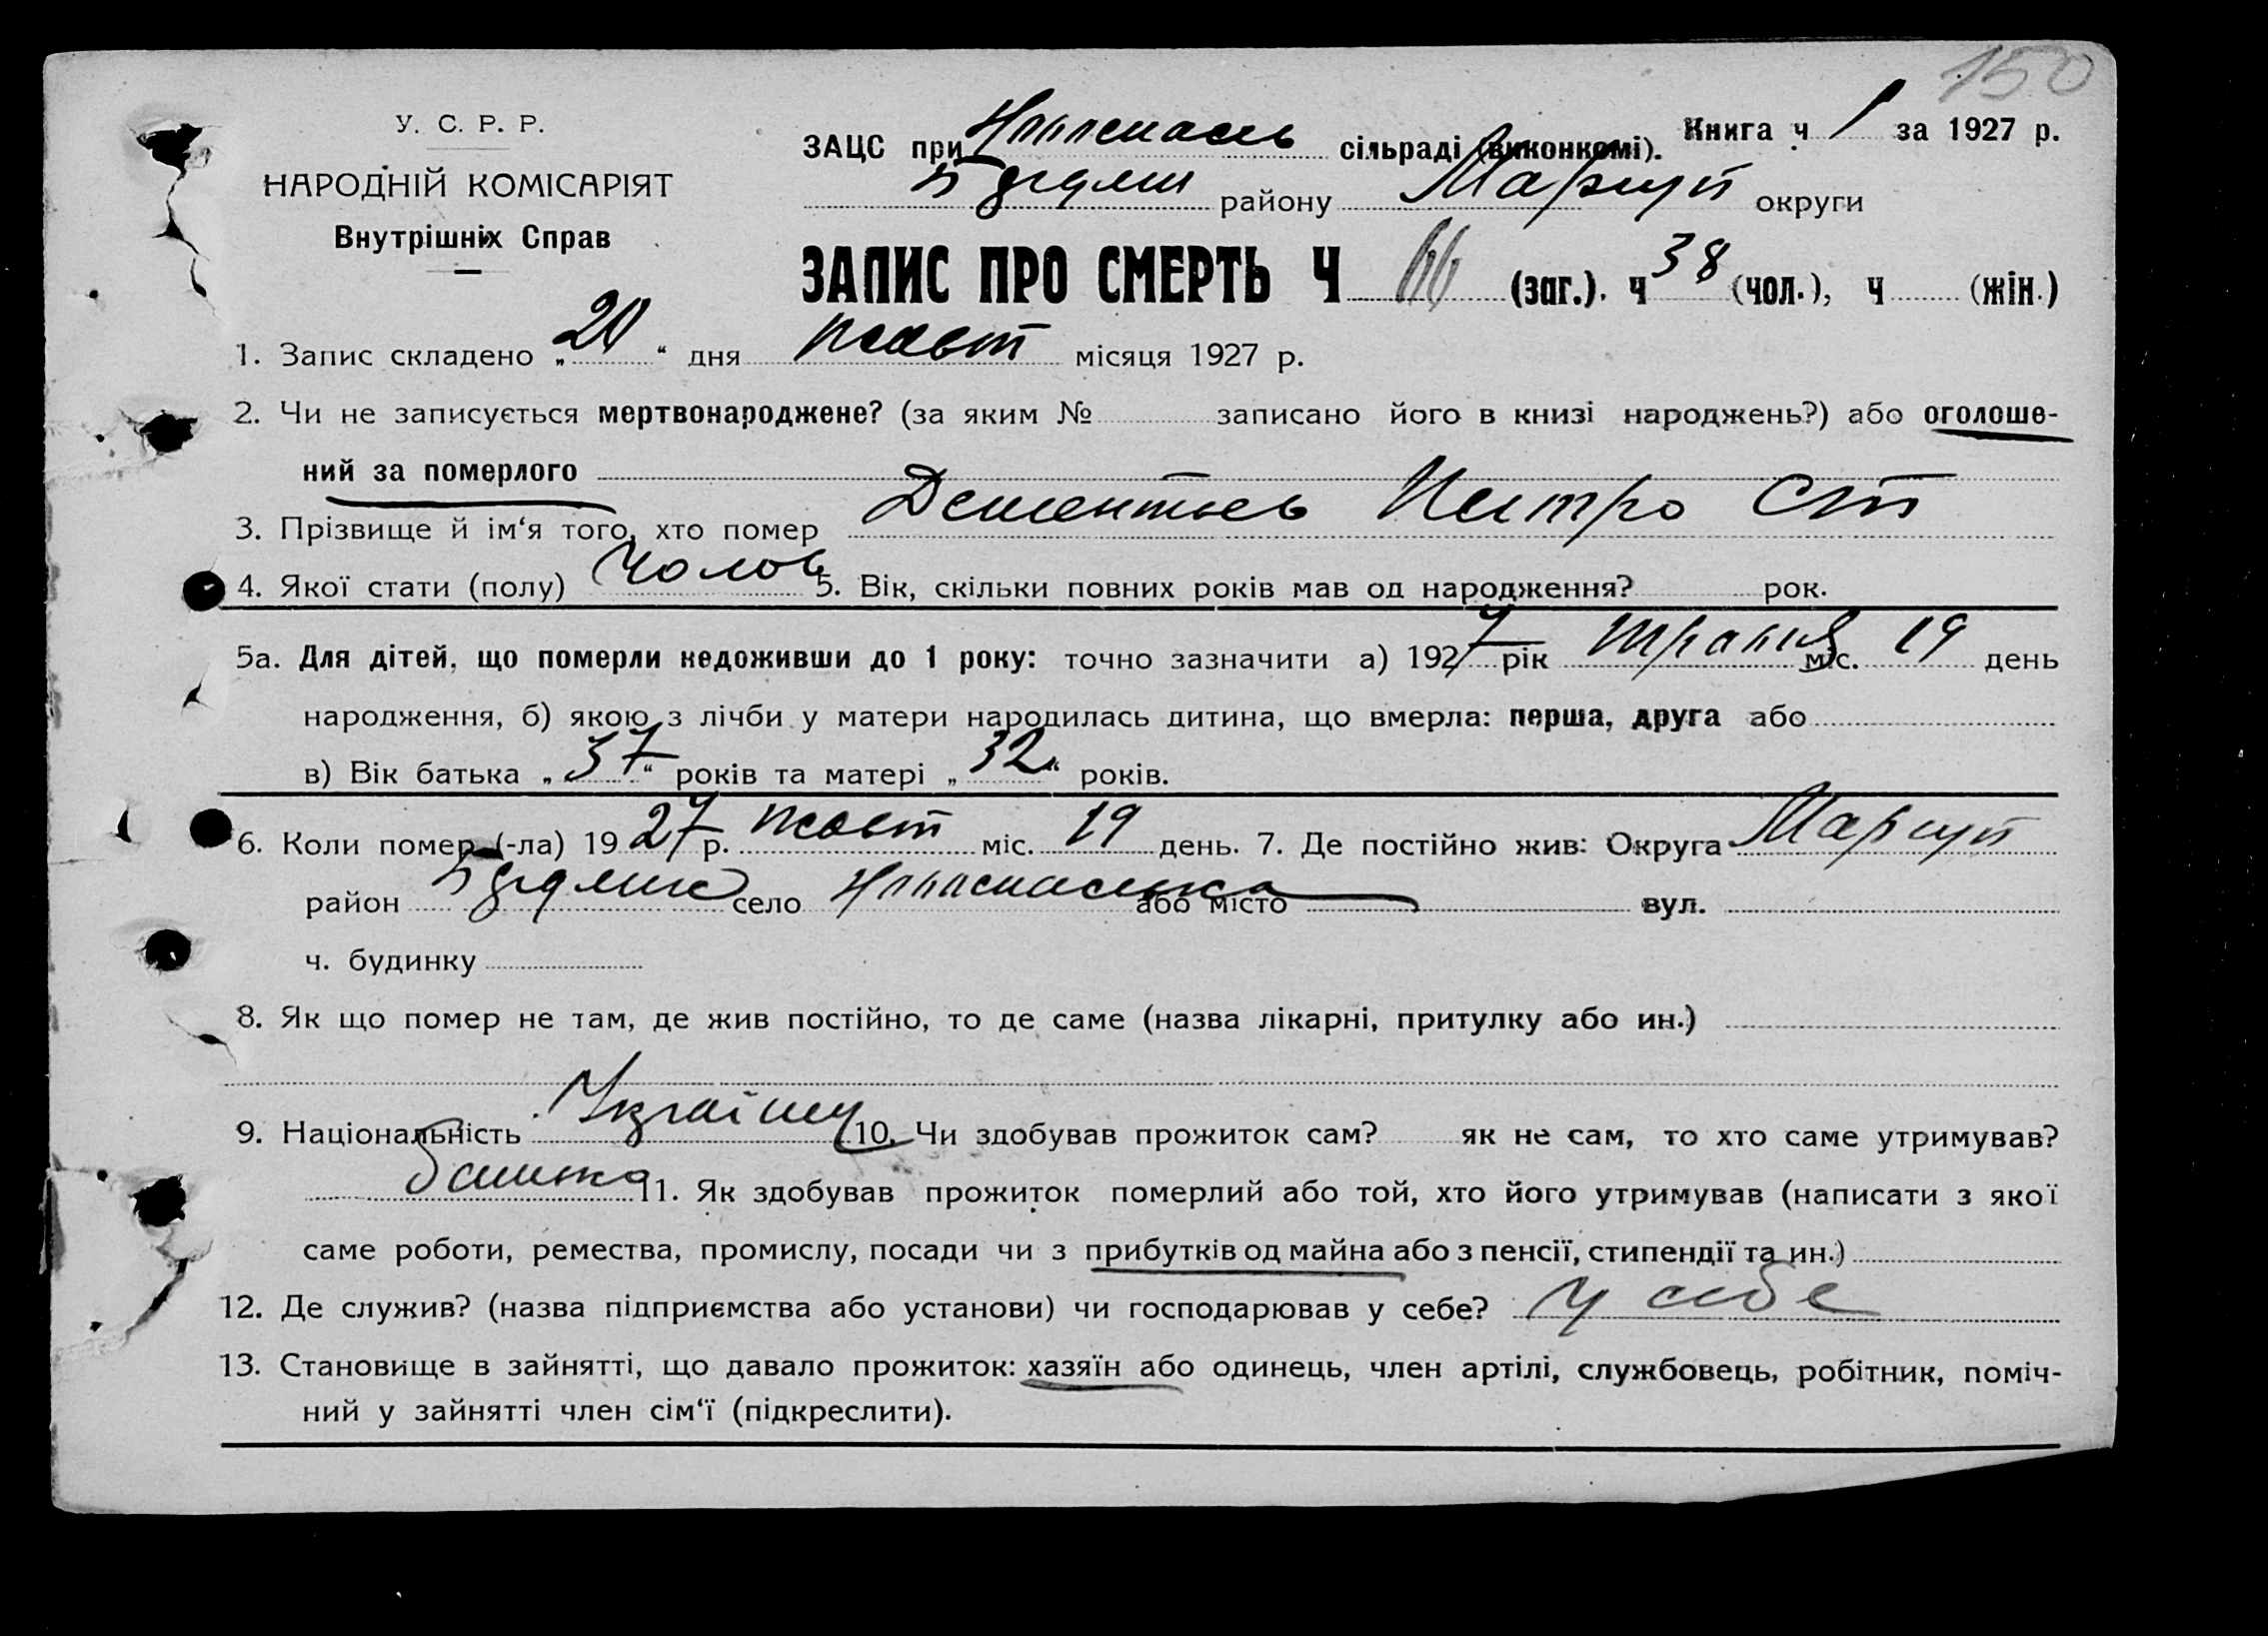 150
У. С. Р. Р.
НАРОДНІЙ КОМІСАРІЯТ
Внутрішніх Справ
ЗАЦС при сільраді (виконкомі). Книга ч 1 за 1927 р.
району Маріуп округи
ЗАПИС ПРО СМЕРТЬ Ч 66 (заг.). ч 38 (чол.), ч (жін.)
1. Запис складено „ 20 “ дня жовт місяця 1927 р.
2. Чи не записується мертвонароджене? (за яким № записано його в книзі народжень?) або оголоше-
ний за померлого
3. Прізвище й ім‘я того, хто помер Дементьев Петро Ст
4. Якої стати (полу) Чолов 5. Вік, скільки повних років мав од народження? рок.
5а. Для дітей, що померли недоживши до 1 року: точно зазначити а) 1927 рік травня міс. 19 день
народження, б) якою з лічби у матери народилась дитина, що вмерла: перша, друга або
в) Вік батька „ 37 “ років та матері „ 32 “ років.
6. Коли помер (-ла) 19 27 р. жовт міс. 19 день. 7. Де постійно жив: Округа Маріуп
район село або місто вул.
ч. будинку
8. Як що помер не там, де жив постійно, то де саме (назва лікарні, притулку або ин.)
9. Національність Українец 10. Чи здобував прожиток сам? як не сам, то хто саме утримував?
батько 11. Як здобував прожиток померлий або той, хто його утримував (написати з якої
саме роботи, ремества, промислу, посади чи з прибутків од майна або з пенсії, стипендії та ин.)
12. Де служив? (назва підприємства або установи) чи господарював у себе? у себе
13. Становище в зайнятті, що давало прожиток: хазяїн або одинець, член артілі, службовець, робітник, поміч-
ний у зайнятті член сім‘ї (підкреслити).